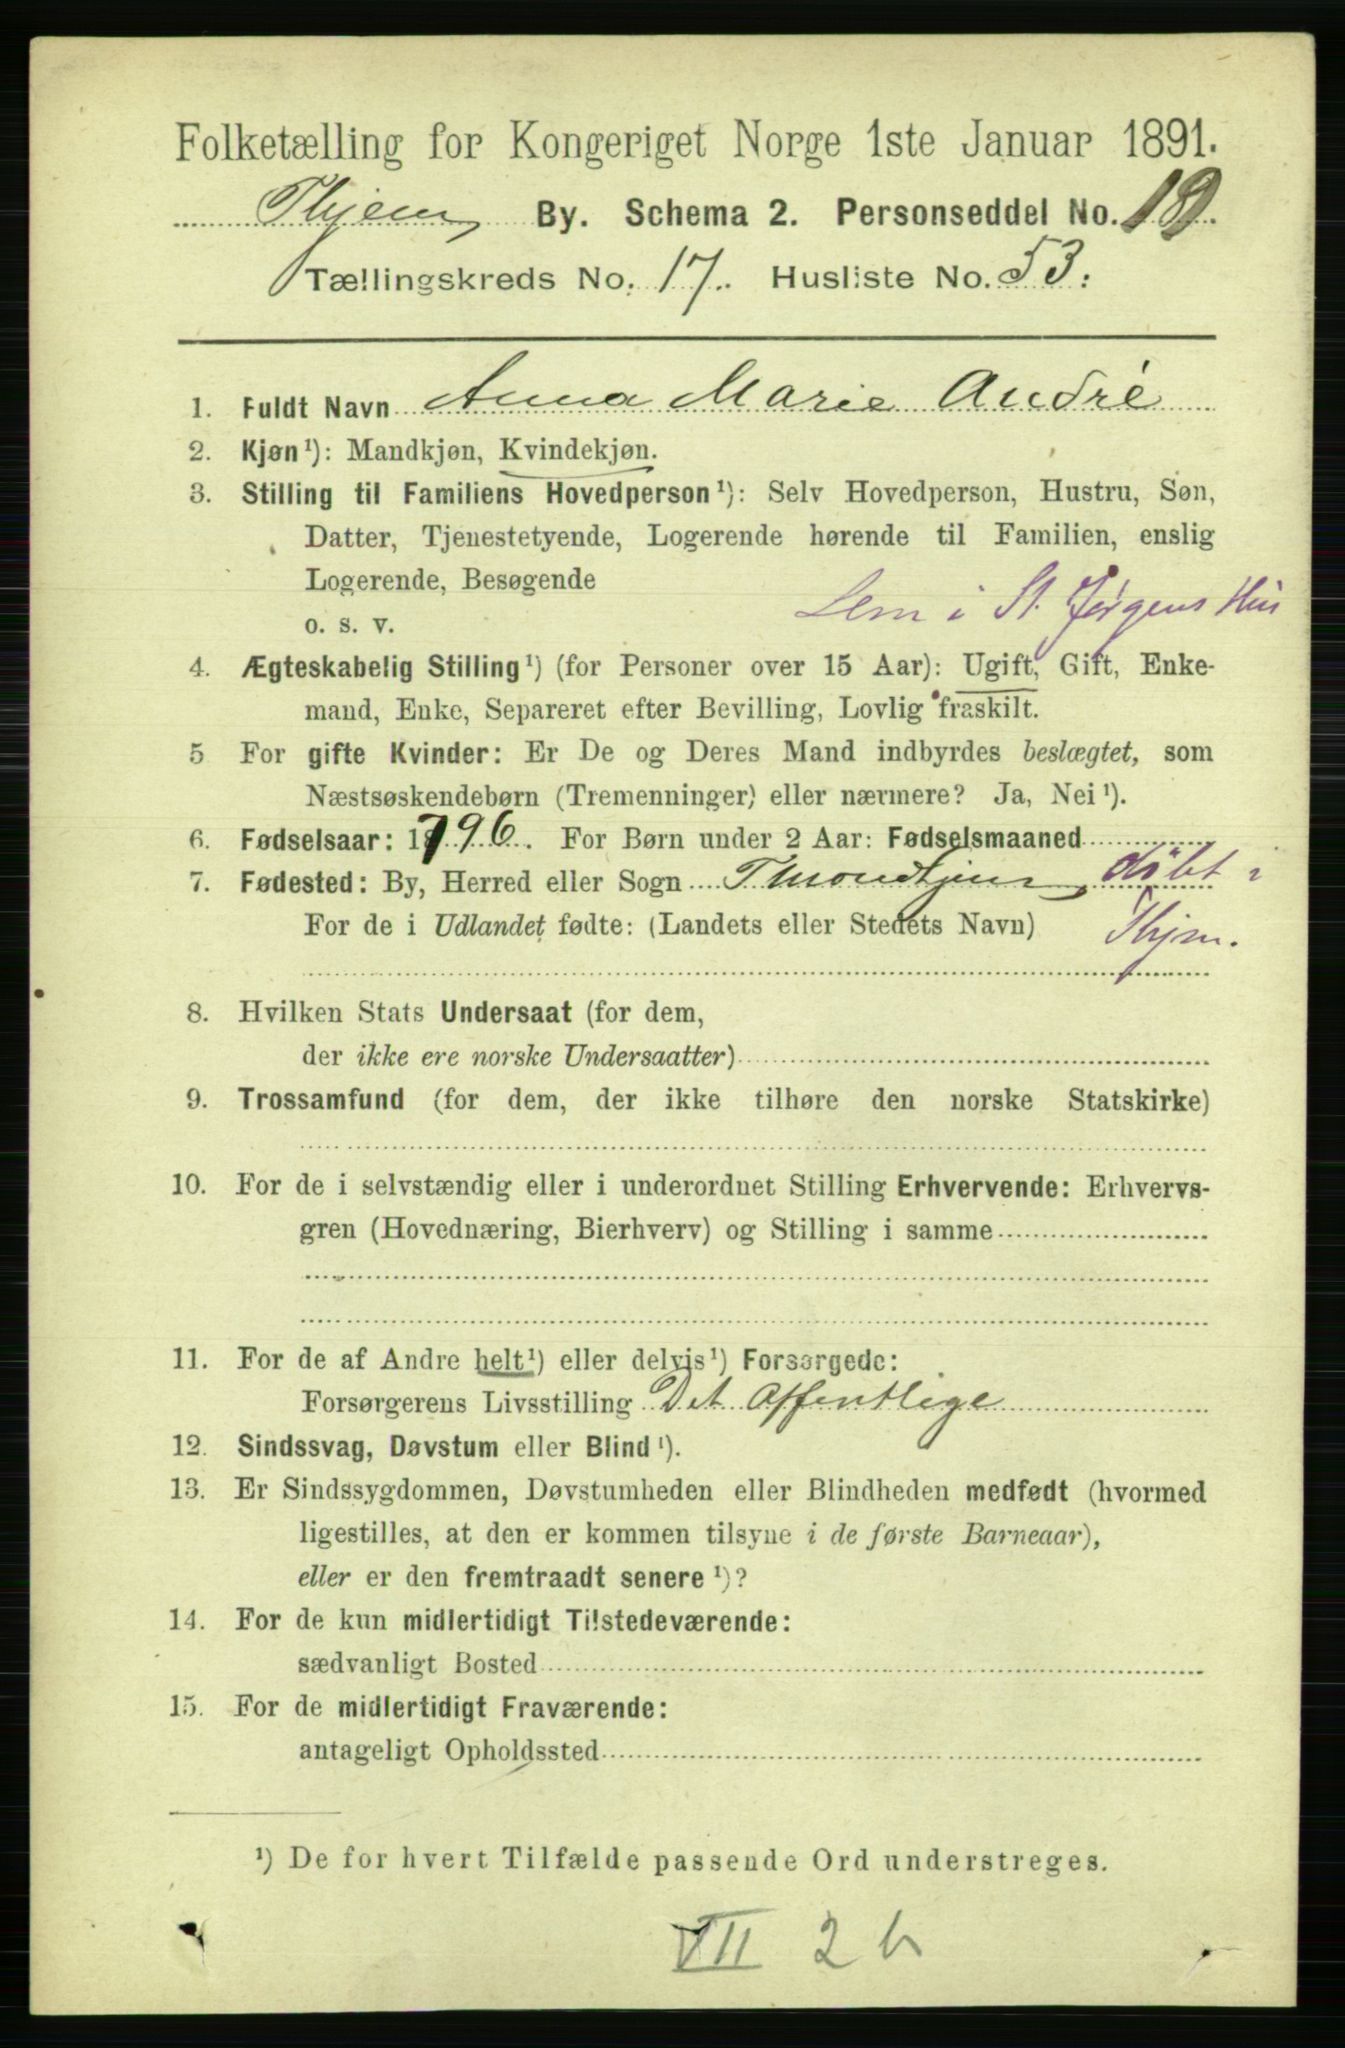 Folketælling for Kongeriget Norge 1ste Januar 1891.
Thjem By. Schema 2. Personseddel No. 19.
Tællingskreds No. 17. Husliste No. 53.
1. Fuldt Navn Anna Marie André
2. Kjøn¹): Mandkjøn, Kvindekjøn.
3. Stilling til Familiens Hovedperson¹): Selv Hovedperson, Hustru, Søn,
Datter, Tjenestetyende, Logerende hørende til Familien, enslig
Logerende, Besøgende
o. s. v. Lem i St. Jørgens Hus
4. Ægteskabelig Stilling¹) (for Personer over 15 Aar): Ugift, Gift, Enke-
mand, Enke, Separeret efter Bevilling, Lovlig fraskilt.
5 For gifte Kvinder: Er De og Deres Mand indbyrdes beslægtet, som
Næstsøskendebørn (Tremenninger) eller nærmere? Ja, Nei¹).
6. Fødselsaar: 1796. For Børn under 2 Aar: Fødselsmaaned
7. Fødested: By, Herred eller Sogn Throndhjem døbt i
For de i Udlandet fødte: (Landets eller Stedets Navn) Thjm.
8. Hvilken Stats Undersaat (for dem,
der ikke ere norske Undersaatter)
9. Trossamfund (for dem, der ikke tilhøre den norske Statskirke)
10. For de i selvstændig eller i underordnet Stilling Erhvervende: Erhvervs-
gren (Hovednæring, Bierhverv) og Stilling i samme
11. For de af Andre helt¹) eller delvis¹) Forsørgede:
Forsørgerens Livsstilling Det Offentlige
12. Sindssvag, Døvstum eller Blind¹).
13. Er Sindssygdommen, Døvstumheden eller Blindheden medfødt (hvormed
ligestilles, at den er kommen tilsyne i de første Barneaar),
eller er den fremtraadt senere¹)?
14. For de kun midlertidigt Tilstedeværende:
sædvanligt Bosted
15. For de midlertidigt Fraværende:
antageligt Opholdssted
¹) De for hvert Tilfælde passende Ord understreges.
VII 2 b